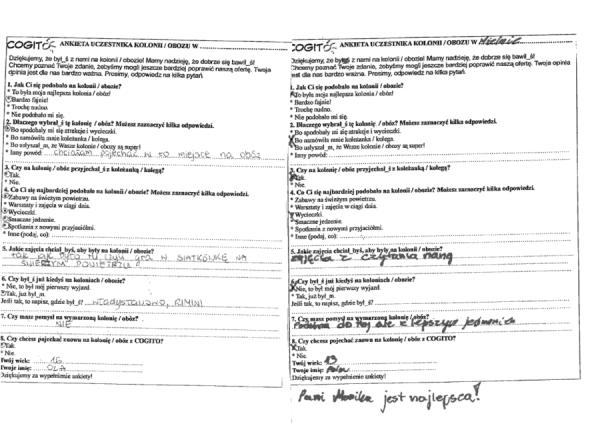 COGITO ANKIETA UCZESTNIKA KOLONII / OBOZU W
Dziękujemy, że był_ś z nami na kolonii / obozie! Mamy nadzieję, że dobrze się bawił_ś!
Chcemy poznać Twoje zdanie, żebyśmy mogli jeszcze bardziej poprawić naszą ofertę. Twoja
opinia jest dla nas bardzo ważna. Prosimy, odpowiedz na kilka pytań.
1. Jak Ci się podobało na kolonii / obozie?
* To była moja najlepsza kolonia / obóz!
* Bardzo fajnie!
* Trochę nudno.
* Nie podobało mi się.
2. Dlaczego wybrał_ś tę kolonię / obóz? Możesz zaznaczyć kilka odpowiedzi.
* Bo spodobały mi się atrakcje i wycieczki.
* Bo namówiła mnie koleżanka / kolega.
* Bo usłyszał_m, że Wasze kolonie / obozy są super!
* Inny powód: chciałam pojechać w to miejsce na obóz
3. Czy na kolonię / obóz przyjechał_ś z koleżanką / kolegą?
* Tak.
* Nie.
4. Co Ci się najbardziej podobało na kolonii / obozie? Możesz zaznaczyć kilka odpowiedzi.
* Zabawy na świeżym powietrzu.
* Warsztaty i zajęcia w ciągu dnia.
* Wycieczki.
* Smaczne jedzenie.
* Spotkania z nowymi przyjaciółmi.
* Inne (podaj, co):
5. Jakie zajęcia chciał_byś, aby były na kolonii / obozie?
gra w SIATKÓWKĘ NA
ŚWIEŻYM POWIETRZU
6. Czy był_ś już kiedyś na koloniach / obozie?
* Nie, to był mój pierwszy wyjazd.
* Tak, już był_m.
Jeśli tak, to napisz, gdzie był_ś? Władysławowo, RIMINI
7. Czy masz pomysł na wymarzoną kolonię / obóz?
NIE
8. Czy chcesz pojechać znowu na kolonię / obóz z COGITO?
* Tak.
* Nie.
Twój wiek: 16
Twoje imię: OLA
Dziękujemy za wypełnienie ankiety!
COGITO ANKIETA UCZESTNIKA KOLONII / OBOZU W
Dziękujemy, że był_ś z nami na kolonii / obozie! Mamy nadzieję, że dobrze się bawił_ś!
Chcemy poznać Twoje zdanie, żebyśmy mogli jeszcze bardziej poprawić naszą ofertę. Twoja opinia
jest dla nas bardzo ważna. Prosimy, odpowiedz na kilka pytań.
1. Jak Ci się podobało na kolonii / obozie?
* To była moja najlepsza kolonia / obóz!
* Bardzo fajnie!
* Trochę nudno.
* Nie podobało mi się.
2. Dlaczego wybrał_ś tę kolonię / obóz? Możesz zaznaczyć kilka odpowiedzi.
* Bo spodobały mi się atrakcje i wycieczki.
* Bo namówiła mnie koleżanka / kolega.
* Bo usłyszał_m, że Wasze kolonie / obozy są super!
* Inny powód:
3. Czy na kolonię / obóz przyjechał_ś z koleżanką / kolegą?
* Tak.
* Nie.
4. Co Ci się najbardziej podobało na kolonii / obozie? Możesz zaznaczyć kilka odpowiedzi.
* Zabawy na świeżym powietrzu.
* Warsztaty i zajęcia w ciągu dnia.
* Wycieczki.
* Smaczne jedzenie.
* Spotkania z nowymi przyjaciółmi.
* Inne (podaj, co):
5. Jakie zajęcia chciał_byś, aby były na kolonii / obozie?
zajęcia z czytania
6. Czy był_ś już kiedyś na koloniach / obozie?
* Nie, to był mój pierwszy wyjazd.
* Tak, już był_m.
Jeśli tak, to napisz, gdzie był_ś?
7. Czy masz pomysł na wymarzoną kolonię / obóz?
Podobna do tej ale z lepszym
8. Czy chcesz pojechać znowu na kolonię / obóz z COGITO?
* Tak.
* Nie.
Twój wiek: 13
Twoje imię:
Dziękujemy za wypełnienie ankiety!
Pani Monika jest najlepsca!